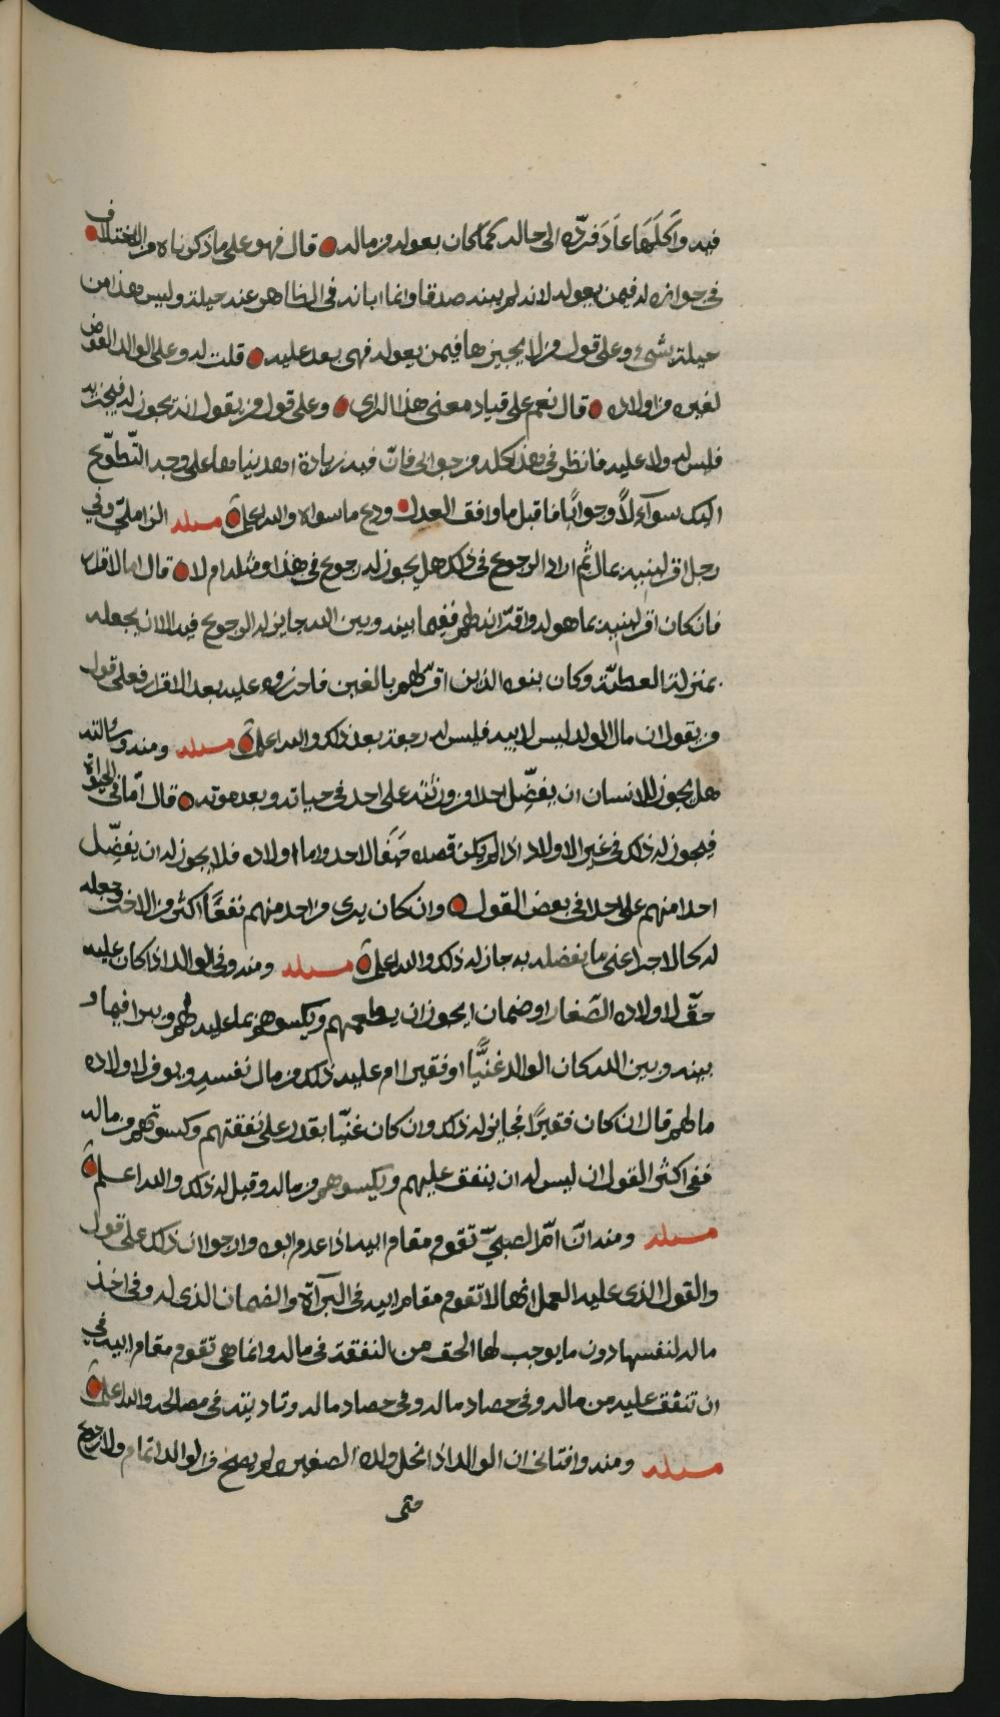 فيه واكلها عاد فرده الى حاله كما كان بعوله من ماله قال فهو على ما ذكرناه من الاختلاف
في جوازه له فيمن يعوله لانه لم يبنه صدقا وانما ابانه في الظاهر عند حيلة وليس هذا من
حيلته بشيء وعلى قول من لا يجيزها فيمن يعوله فهي بعد عليه قلت له وعلى الوالد العوض
لغيره من اولاده قال نعم على قياد معنى هذا الرأي وعلى قول من يقول انه يجوز له فيجتزيه
فليس له ولا عليه فانظر في هذا كله من جوابي فان فيه زيادة اهديناها على وجه التطوّع
اليك سوآءلاً وجواباً فاقبل ما وافق العدل ودع ما سواه والله اعلم مسئلة الزاملي وفي
رجل اقر لبنيه بمال ثم اراد الرجوع في ذلك هل يجوز له رجوع في هذا ومثله ام لا قال اما الاقرار
فان كان اقر لبنيه بما هو له واقر انه لهم ففيما بينه وبين الله جايز له الرجوع فيه الا ان يجعله
بمنزلة العطيّة وكان بنوه الذين اقرّ لهم بالغين فاحرزوه عليه بعد الاقرار فعلى قول
من يقول ان مال الولد ليس لابيه فليس له رجعة بعد ذلك والله اعلم مسئلة ومنه وسالته
هل يجوز للانسان ان يفضّل احدا من ورثته على احد في حياته وبعد موته قال امّا في الحياة
فيجوز له ذلك في غير الاولاد اذا لم يكن قصده حَيفا لاحد واما اولاده فلا يجوز له ان يفضّل
احدا منهم على احد في بعض القول وان كان يرى من احد منهم نفعًا اكثر من الاخر وجعله
له كالاجر اعني ما يفضله به جاز له ذلك والله اعلم مسئلة ومنه وفي الوالد اذا كان عليه
حقّ لاولاده الصّغار او ضمان ايجوز ان يطعمهم ويكسوهم بما عليه لهم ويبرا فيما
بينه وبين الله كان الوالد غنيًّا او فقيرا ام عليه ذلك من مال نفسهِ ويوفر لاولاده
ما لهم قال ان كان فقيرًا فجايز له ذلك وان كان غنيّا يقدر على نفقتهم وكسوتهم من ماله
ففي اكثر القول ان ليس له ان ينفق عليهم ويكسوهم من ماله وقيل له ذلك والله اعلم
مسئلة ومنه انّ امّ الصبيّ تقوم مقام ابيه اذا عدم ابوه وارجوا ان ذلك على قول
والقول الذي عليه العمل انها لا تقوم مقام ابيه في البرآة والضمان الذي له وفي اخذ
ماله لنفسها دون ما يوجب لها الحق من النفقة في ماله وانما هي تقوم مقام ابيه في
ان تنفق عليه من ماله وفي حصاد ماله وفي حصاد ماله وتاديته في مصالحه والله اعلم
مسئلة ومنه وافتاني ان الوالد اذا نحل ولده الصغير ولم يصح من الوالد اتمام ولا رجوع
حتى